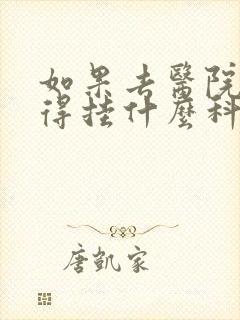 如果去醫院
得挂什麼科
唐凱家